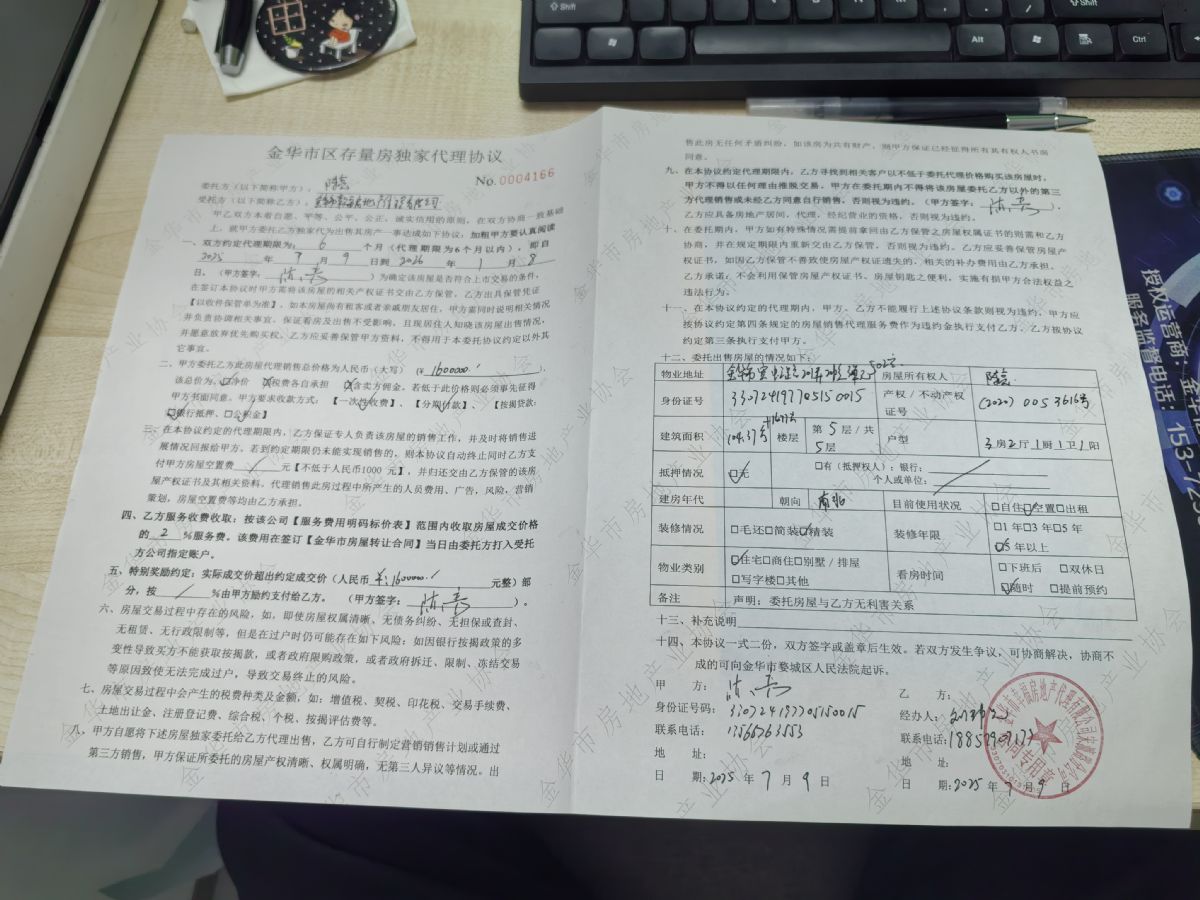 金华市区存量房独家代理协议
No.0004166
委托方（以下简称甲方）：
受托方（以下简称乙方）：
甲乙双方本着自愿、平等、公平、公正、诚实信用的原则，在双方协商一致基础
上，就甲方委托乙方独家代为出售其房产一事达成如下协议：加租甲方要认真阅读
一、双方约定代理期限为： 6 个月（代理期限为6个月以内），即自
2025 年 7 月 9 日到 2026 年 1 月 8
日。（甲方签字： ）为确定该房屋是否符合上市交易的条件，
在签订本协议时甲方需将该房屋的相关产权证书交由乙方保管，乙方出具保管凭证
【以收件保管单为准】，如本房屋尚有租客或者亲戚朋友居住，甲方需同时说明相关情况
并负责协调相关事宜、保证看房及出售不受影响，且现居住人知晓该房屋出售情况，
并愿意放弃优先购买权。乙方应妥善保管甲方资料，不得用于本委托协议约定以外其
它事宜。
二、甲方委托乙方此房屋代理销售总价格为人民币（大写）（¥ 1600000.! ），
该总价为、☑净价 税费各自承担 含卖方佣金。若低于此价格则必须事先征得
甲方书面同意。甲方要求收款方式：【一次性收费】、【分期付款】、【按揭贷款：
银行抵押、公积金】
三、在本协议约定的代理期限内，乙方保证专人负责该房屋的销售工作，并及时将销售进
展情况回报给甲方。若到约定期限仍未能实现销售的，则本协议自动终止同时乙方支
付甲方房屋空置费 / 元【不低于人民币1000 元】，并归还交由乙方保管的该房
屋产权证书及其相关资料。代理销售此房过程中所产生的人员费用、广告，风险，营销
策划，房屋空置费等均由乙方承担。
四、乙方服务收费收取：按该公司【服务费用明码标价表】范围内收取房屋成交价格
的 2 %服务费。该费用在签订【金华市房屋转让合同】当日由委托方打入受托
方公司指定账户。
五、特别奖励约定：实际成交价超出约定成交价（人民币 ¥:1600000.! 元整）部
分，按 / %由甲方励约支付给乙方。 （甲方签字： ）。
六、房屋交易过程中存在的风险，如，即使房屋权属清晰、无债务纠纷、无担保或查封、
无租赁、无行政限制等，但是在过户时仍可能存在如下风险：如因银行按揭政策的多
变性导致买方不能获取按揭款，或者政府限购政策，或者政府拆迁、限制、冻结交易
等原因致使无法完成过户，导致交易终止的风险。
七、房屋交易过程中会产生的税费种类及金额，如：增值税、契税、印花税、交易手续费、
土地出让金、注册登记费、综合税、个税、按揭评估费等。
八、甲方自愿将下述房屋独家委托给乙方代理出售，乙方可自行制定营销销售计划或通过
第三方销售，甲方保证所委托的房屋产权清晰、权属明确，无第三人异议等情况。出
售此房无任何矛盾纠纷，如该房为共有财产，则甲方保证已经征得所有其有权人书面
同意。
九、在本协议约定代理期限内，乙方寻找到相关客户以不低于委托代理价格购买该房屋时，
甲方不得以任何理由推脱交易，甲方在委托期内不得将该房屋委托乙方以外的第三
方代理销售或未经乙方同意自行销售，否则视为违约。（甲方签字： ）
乙方应具备房地产居间，代理，经纪营业的资格，否则视为违约。
十、在委托期内，甲方如有特殊情况需提前拿回由乙方保管之房屋权属证书的则需和乙方
协商，并在规定期限内重新交由乙方保管，否则视为违约。乙方应妥善保管房屋产
权证书，如因乙方保管不善致使房屋产权证遗失的，相关的补办费用由乙方承担。
乙方承诺，不会利用保管房屋产权证书、房屋钥匙之便利，实施有损甲方合法权益之
违法行为；
十一、在本协议约定的代理期内，甲方、乙方不能履行上述协议条款则视为违约，甲方应
按协议约定第四条规定的房屋销售代理服务费作为违约金执行支付乙方、乙方按协议
约定第三条执行支付甲方。
十二、委托出售房屋的情况如下：
物业地址 502室 房屋所有权人
身份证号 330724197705150015 产权 / 不动产权证号 (2020) 0053616号
建筑面积 104.37 楼层 第 5 层 / 共 5层 户型 3房2厅1厨1卫1阳
抵押情况 ☑无 □有（抵押权人）：银行：
个人或单位：
建房年代 朝向 南北 目前使用状况 □自住☑空置□出租
装修情况 □毛还□简装☑精装 装修年限 □1 年□3 年□5 年
☑5 年以上
物业类别 ☑住宅□商住□别墅 / 排屋
□写字楼□其他 看房时间 □下班后 □双休日
☑随时 □提前预约
备注 声明：委托房屋与乙方无利害关系
十三、补充说明
十四、本协议一式二份，双方签字或盖章后生效。若双方发生争议，可协商解决，协商不
成的可向金华市婺城区人民法院起诉。
甲 方：
身份证号码：330724197705150015
联系电话：13566763553
地 址：
日 期：2025 年 7 月 9 日
乙 方：
经办人：
联系电话：
地 址：
日 期：2025 年 7 月 9 日
授权运营商：金华
服务监督电话：153-72